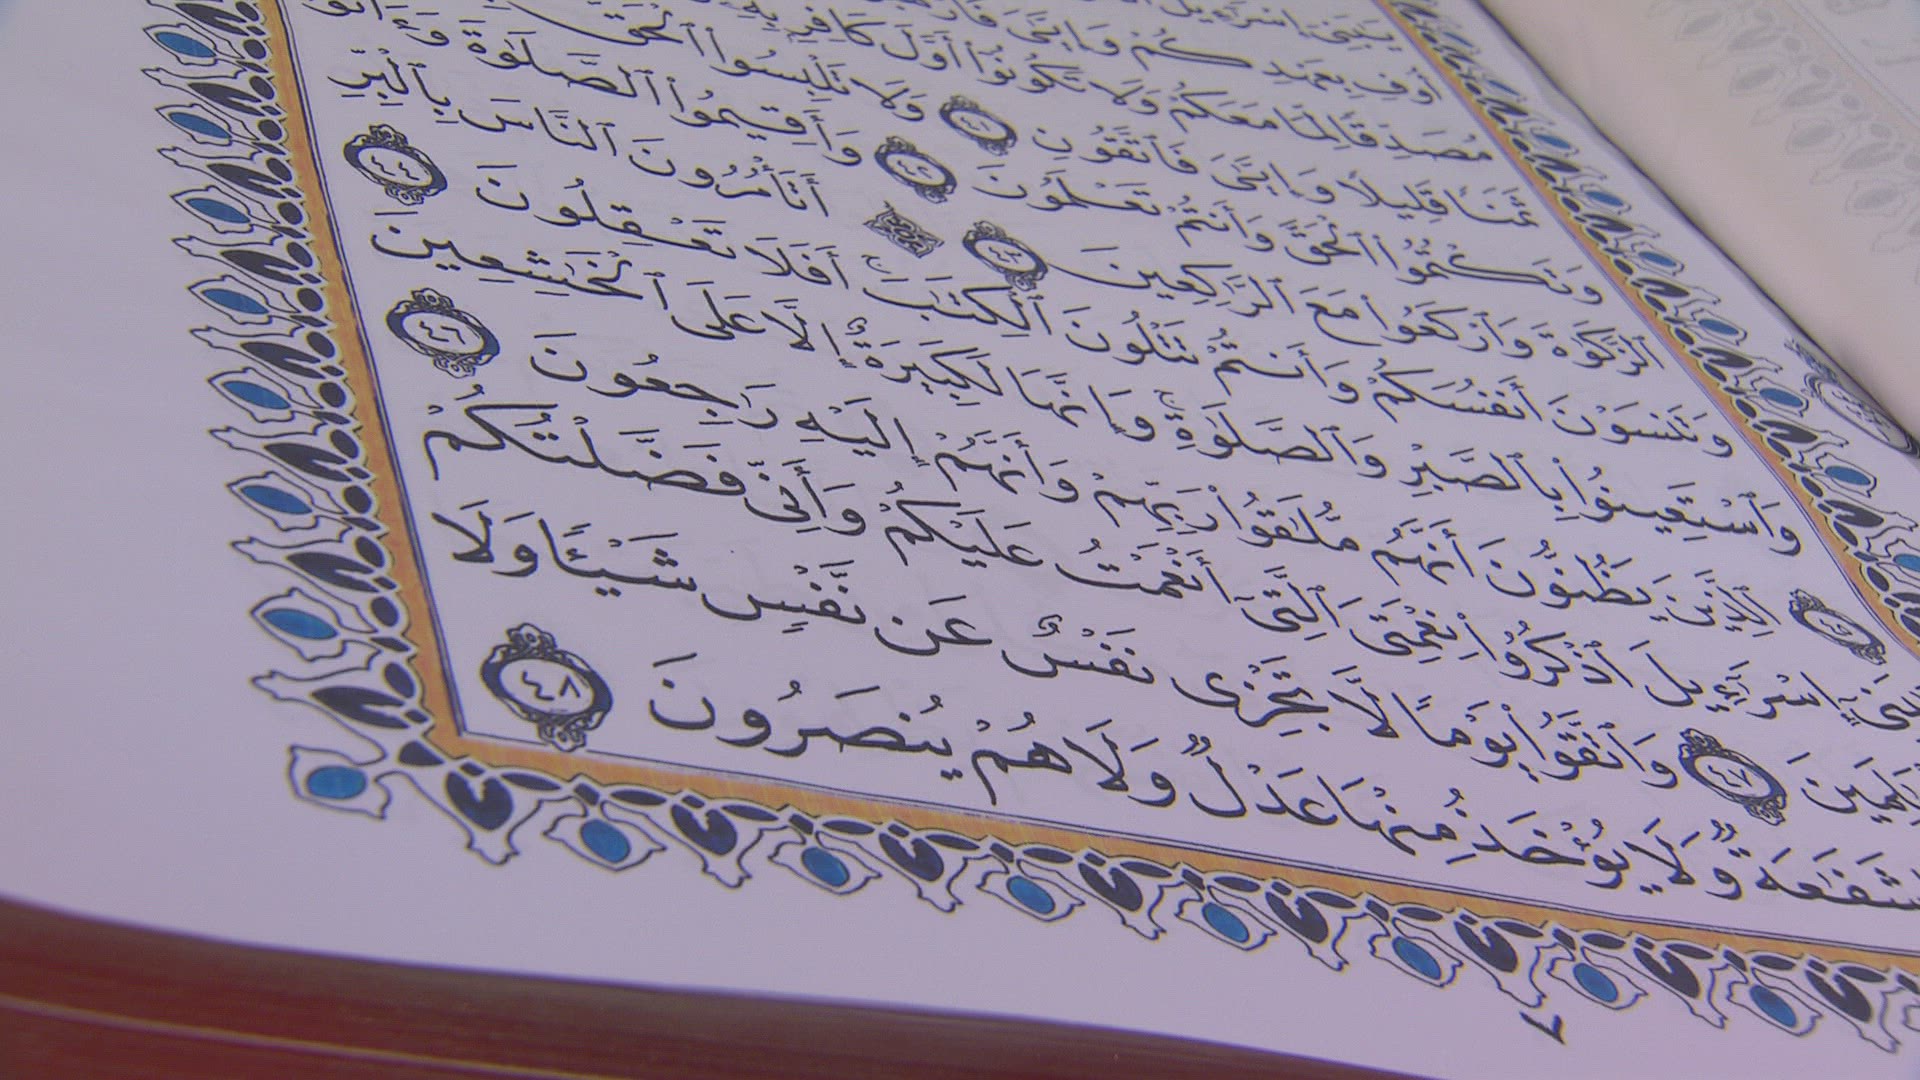 يَٰبَنِىٓ إِسْرَٰٓءِيلَ
أُوفِ بِعَهْدِكُمْ وَإِيَّٰىَ
مُصَدِّقًا لِّمَا مَعَكُمْ وَلَا تَكُونُوٓا۟ أَوَّلَ كَافِرٍۭ بِهِۦ
ثَمَنًا قَلِيلًا وَإِيَّٰىَ فَٱتَّقُونِ ٤١ وَلَا تَلْبِسُوا۟ ٱلْحَقَّ
وَتَكْتُمُوا۟ ٱلْحَقَّ وَأَنتُمْ تَعْلَمُونَ ٤٢ وَأَقِيمُوا۟ ٱلصَّلَوٰةَ وَءَاتُوا۟
ٱلزَّكَوٰةَ وَٱرْكَعُوا۟ مَعَ ٱلرَّٰكِعِينَ ٤٣ أَتَأْمُرُونَ ٱلنَّاسَ بِٱلْبِرِّ
وَتَنسَوْنَ أَنفُسَكُمْ وَأَنتُمْ تَتْلُونَ ٱلْكِتَٰبَ ۚ أَفَلَا تَعْقِلُونَ ٤٤
وَٱسْتَعِينُوا۟ بِٱلصَّبْرِ وَٱلصَّلَوٰةِ ۚ وَإِنَّهَا لَكَبِيرَةٌ إِلَّا عَلَى ٱلْخَٰشِعِينَ
٤٥ ٱلَّذِينَ يَظُنُّونَ أَنَّهُم مُّلَٰقُوا۟ رَبِّهِمْ وَأَنَّهُمْ إِلَيْهِ رَٰجِعُونَ ٤٦
يَٰبَنِىٓ إِسْرَٰٓءِيلَ ٱذْكُرُوا۟ نِعْمَتِىَ ٱلَّتِىٓ أَنْعَمْتُ عَلَيْكُمْ وَأَنِّى فَضَّلْتُكُمْ
ٱلْعَٰلَمِينَ ٤٧ وَٱتَّقُوا۟ يَوْمًا لَّا تَجْزِى نَفْسٌ عَن نَّفْسٍ شَيْـًٔا وَلَا
شَفَٰعَةٌ وَلَا يُؤْخَذُ مِنْهَا عَدْلٌ وَلَا هُمْ يُنصَرُونَ ٤٨